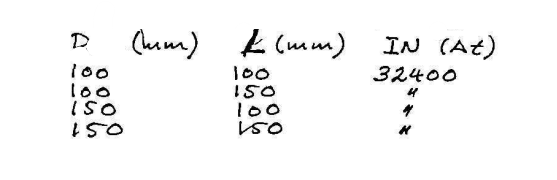 D (mm) L (mm) IN (At)
100 100 32400
100 150 "
150 100 "
150 150 "